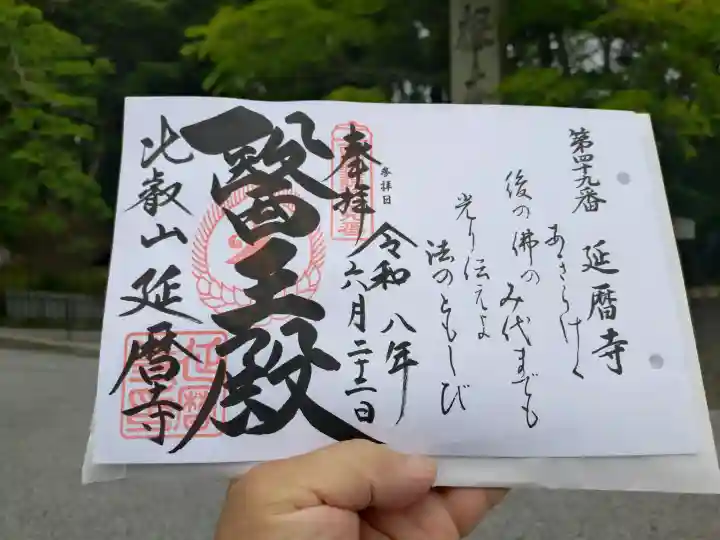 第四十九番 延暦寺
あきらけく
後の佛の
み代までも
光り伝えよ
法のともしび
参拝日
令和八年
六月二十二日
奉拝
醫王殿
比叡山延暦寺